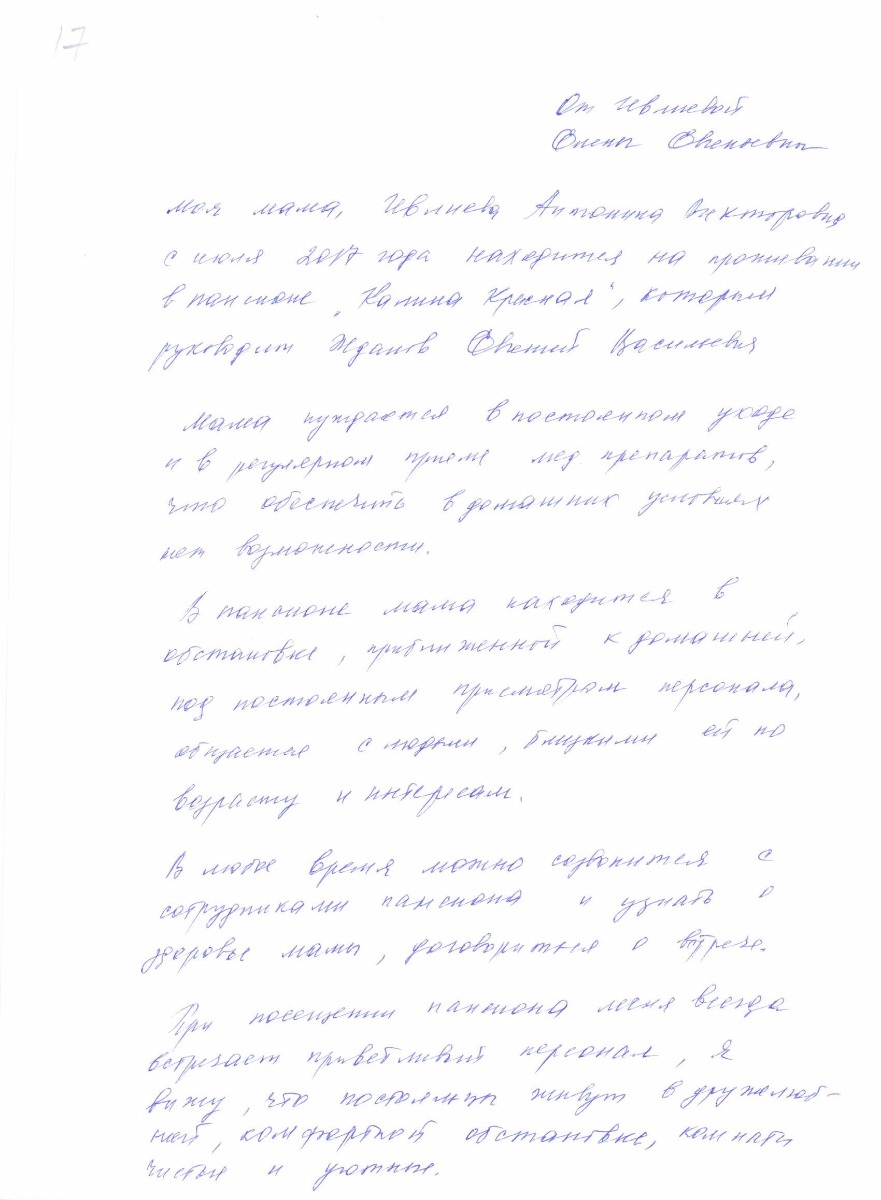 17
От Гевлиевой
Елены Евгеньевны
моя мама, Гевлиева Антонина Викторовна
с июля 2017 года находится на проживании
в пансионе "Калина Красная", которым
руководит Жданов Евгений Васильевич
Мама нуждается в постоянном уходе
и в регулярном приеме мед препаратов,
что обеспечить в домашних условиях
нет возможности.
В пансионе мама находится в
обстановке, приближенной к домашней,
под постоянным присмотром персонала,
общается с людьми, близкими ей по
возрасту и интересам.
В любое время можно созвонится с
сотрудниками пансиона и узнать о
здоровье мамы, договорится о встрече.
При посещении пансиона меня всегда
встречает приветливый персонал, я
вижу, что постояльцы живут в дружелюб-
ной, комфортной обстановке, комнаты
чистые и уютные.